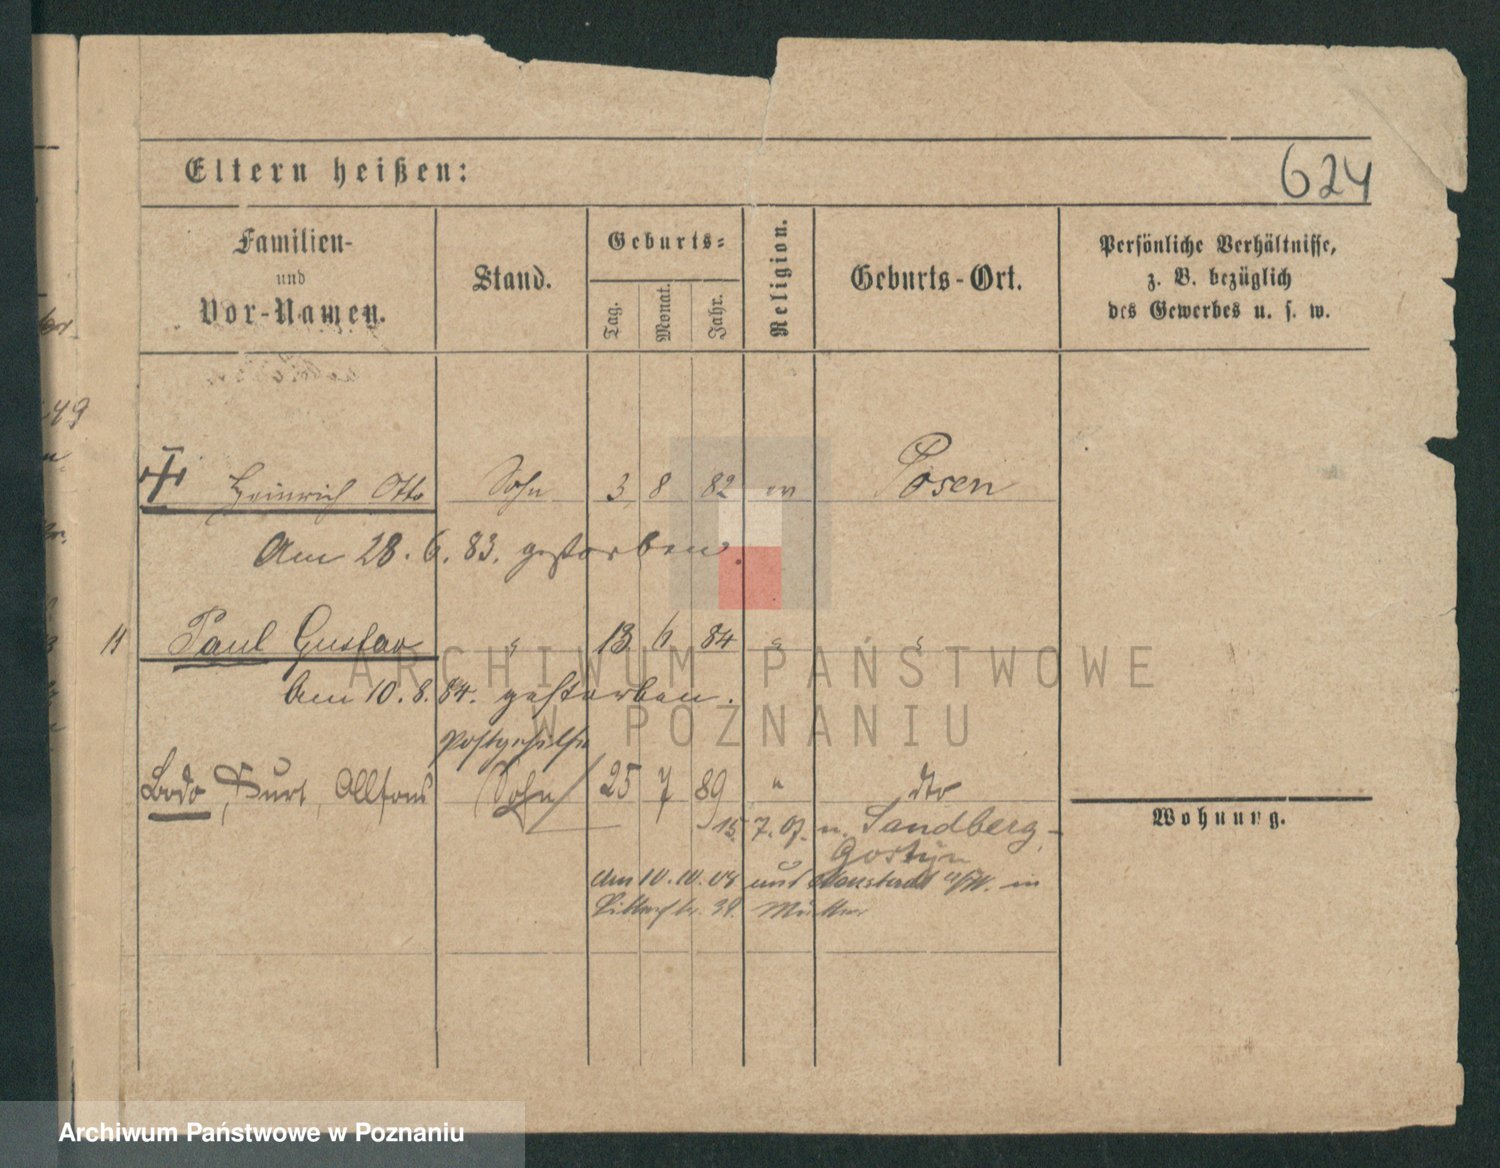 Eltern heißen:
624
Familien-
und
Vor-Namen.
Stand.
Geburts-
Tag.
Monat.
Jahr.
Religion.
Geburts-Ort.
Persönliche Verhältnisse,
z. B. bezüglich
des Gewerbes u. s. w.
49
Heinrich Otto Sohn 3 8 82 Posen
Am 28. 6. 83. gestorben.
Paul Gustav " 13 6 84 " "
Am 10. 8. 84. gestorben.
Postgehilfe
Bodo, Kurt, Alfons Sohn 25 7 89 " dto
Wohnung.
15. 7. 07. n. Sandberg-
Gostyn
Am 10. 10. 08 in
38. Mutter
ARCHIWUM PAŃSTWOWE
W POZNANIU
Archiwum Państwowe w Poznaniu